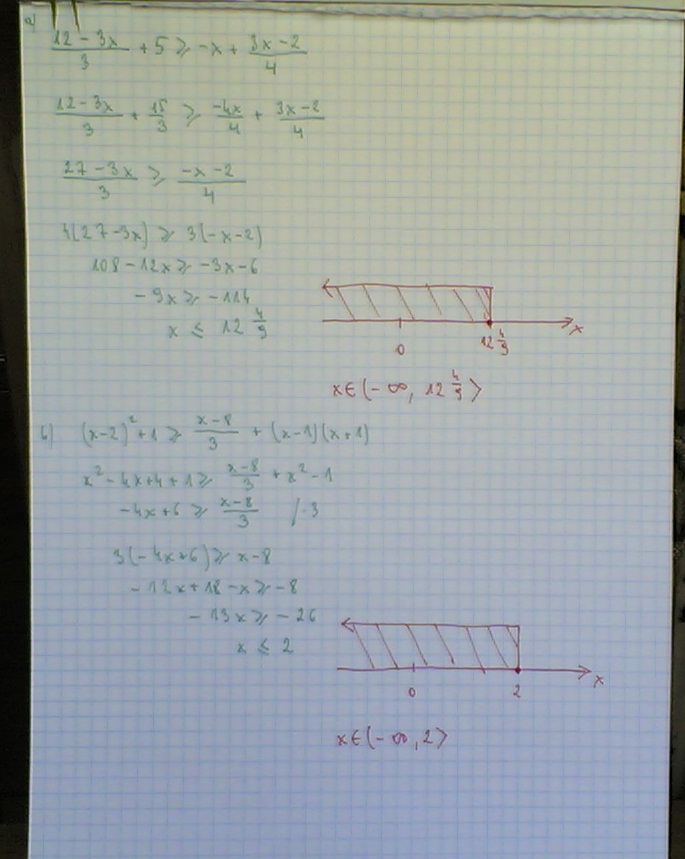 a) (12-3x)/3 + 5 ≥ -x + (3x-2)/4
(12-3x)/3 + 15/3 ≥ -4x/4 + (3x-2)/4
(27-3x)/3 ≥ (-x-2)/4
4(27-3x) ≥ 3(-x-2)
108-12x ≥ -3x-6
-9x ≥ -114
x ≤ 12 4/9
0 12 4/9 x
x∈(-∞, 12 4/9⟩
b) (x-2)²+1 ≥ (x-8)/3 + (x-1)(x+1)
x²-4x+4+1 ≥ (x-8)/3 + x²-1
-4x+6 ≥ (x-8)/3 /·3
3(-4x+6) ≥ x-8
-12x+18-x ≥ -8
-13x ≥ -26
x ≤ 2
0 2 x
x∈(-∞, 2⟩